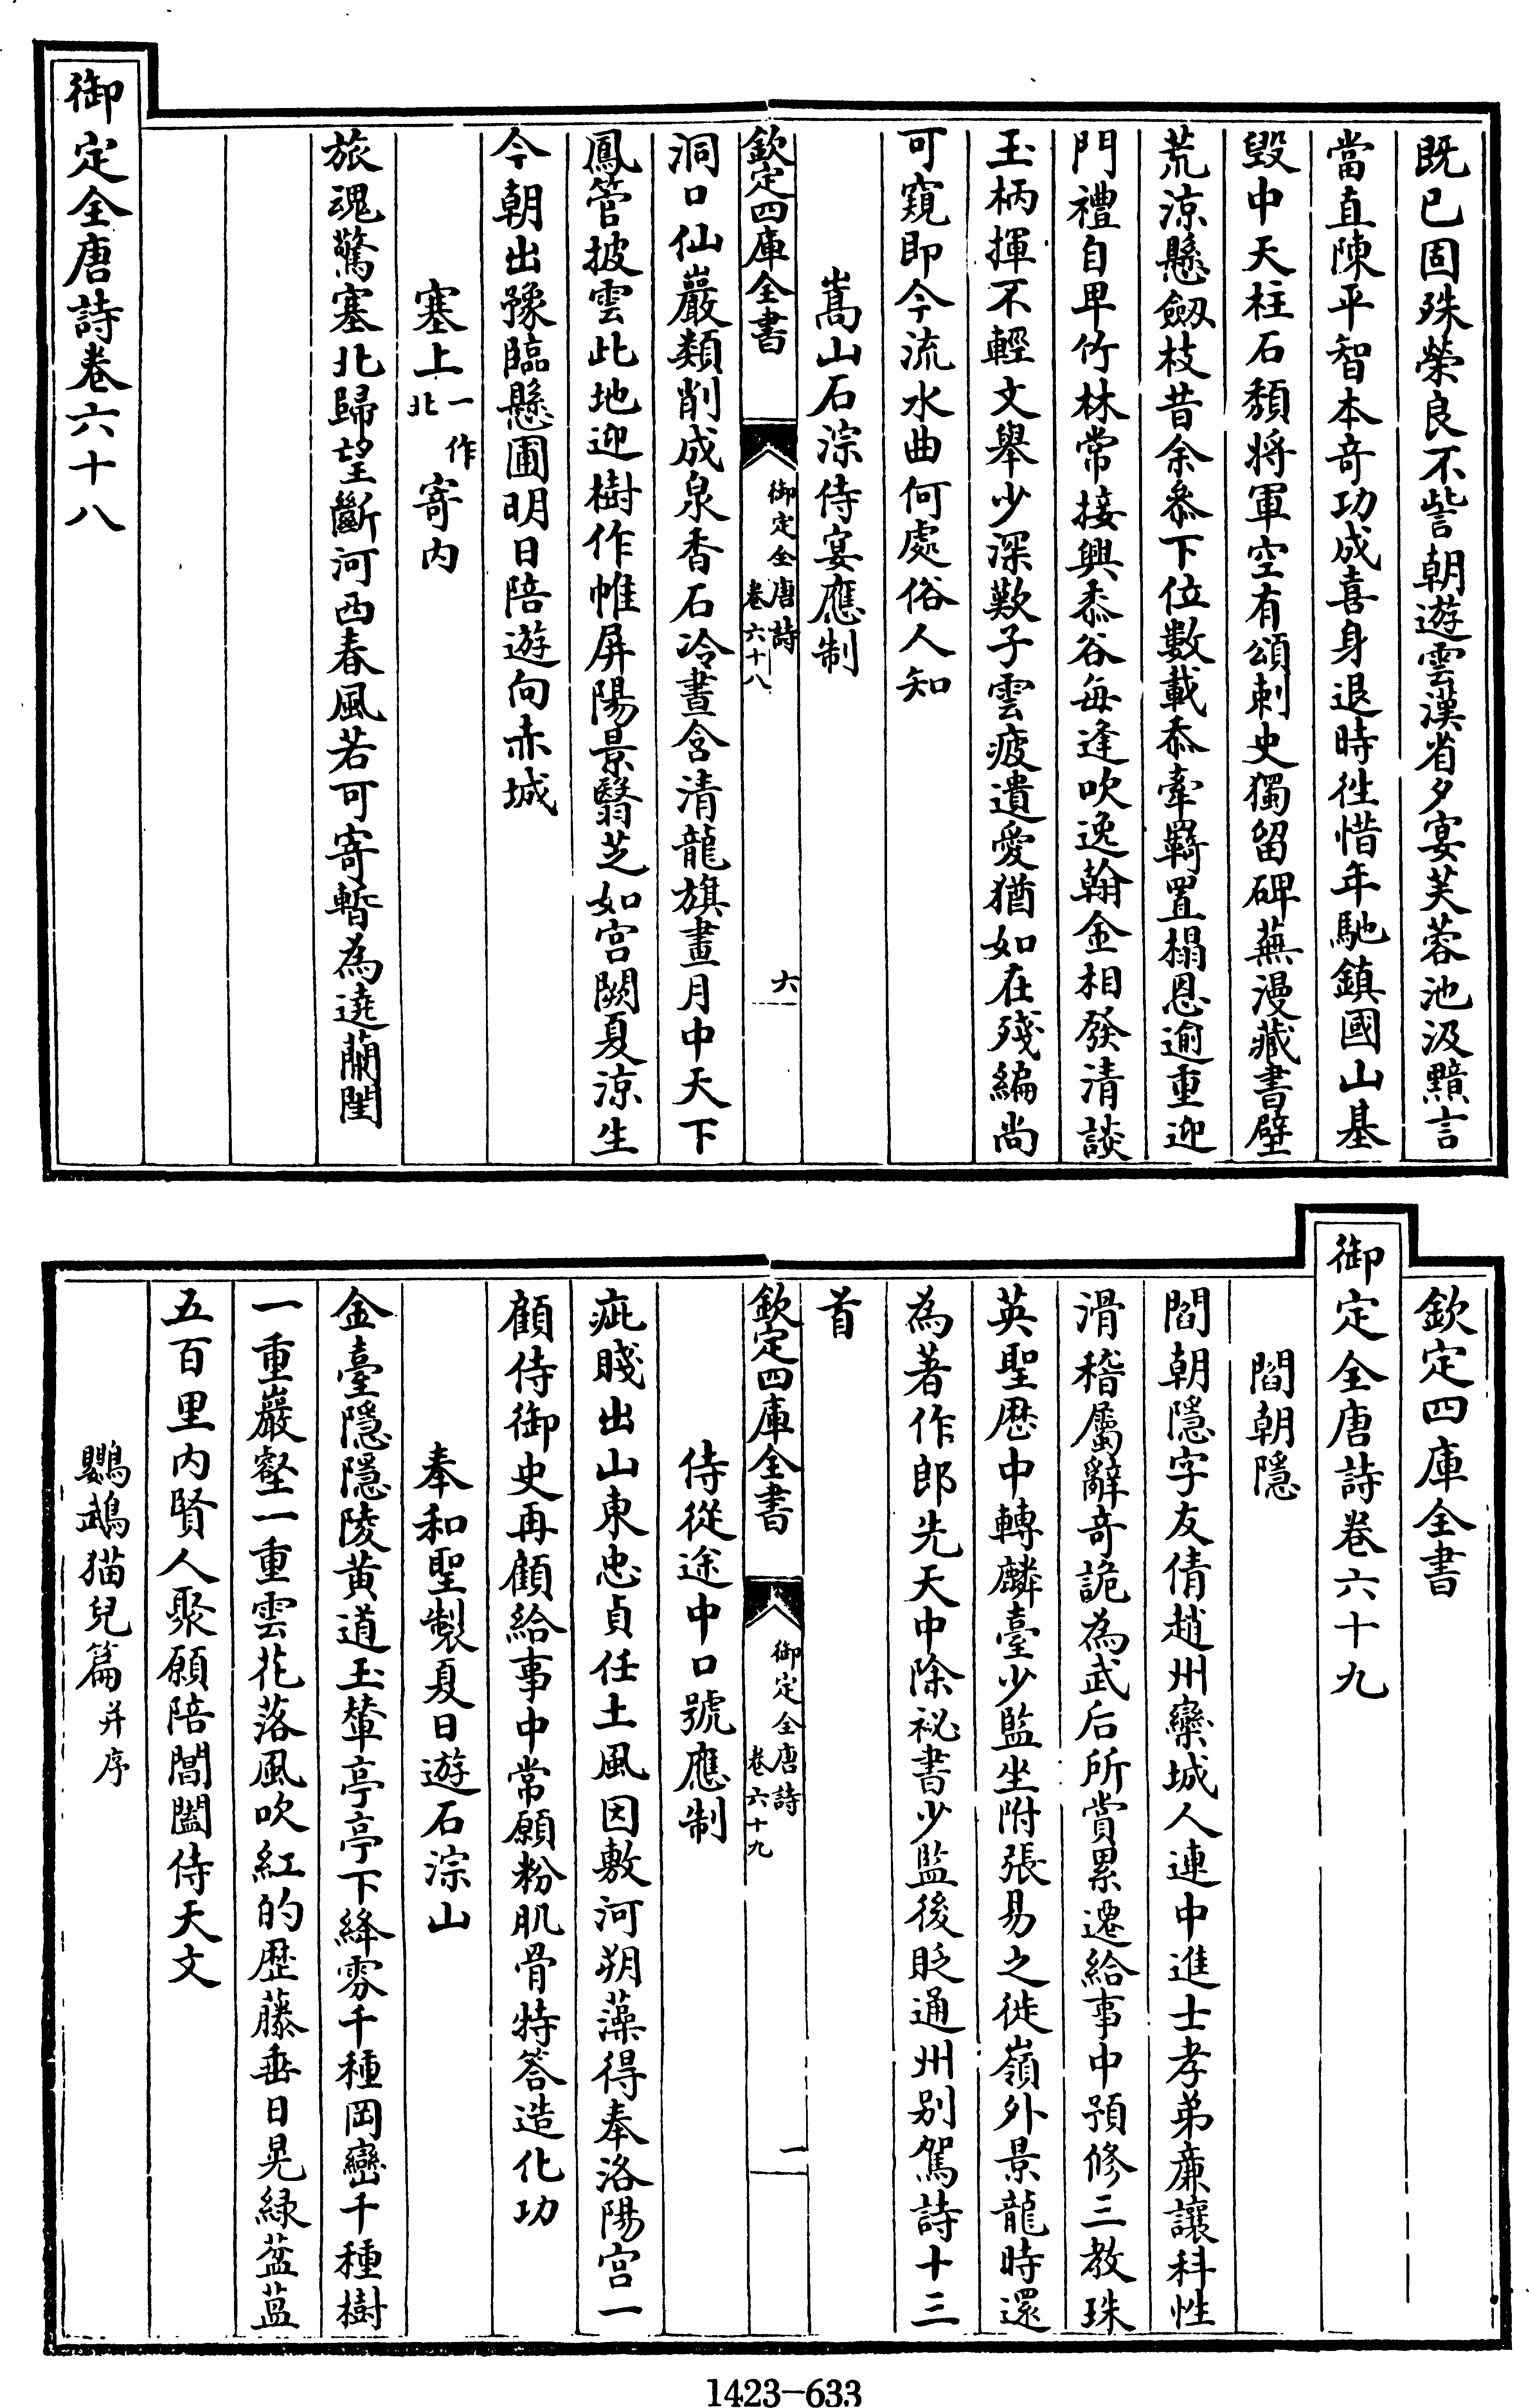 既已固殊榮良不訾朝遊雲漢省夕宴芙蓉池汲黯言
當直陳平智本奇功成喜身退時徃惜年馳鎮國山基
毁中天柱石頽將軍空有頌刺史獨留碑蕪漫藏書壁
荒涼懸劔枝昔余參下位數載忝牽羇置榻恩逾重迎
門禮自卑竹林常接興黍谷每逢吹逸翰金相發清談
玉柄揮不輕文舉少深歎子雲疲遺愛猶如在殘編尚
可窺即今流水曲何處俗人知
嵩山石淙侍宴應制
欽定四庫全書
御定全唐詩
卷六十八
六
洞口仙巖類削成泉香石冷晝含清龍旗畫月中天下
鳳管披雲此地迎樹作帷屏陽景翳芝如宫闕夏涼生
今朝出豫臨懸圃明日陪遊向赤城
塞上一作北寄内
旅魂驚塞北歸望斷河西春風若可寄暫為遶蘭閨
御定全唐詩卷六十八
欽定四庫全書
御定全唐詩卷六十九
閻朝隱
閻朝隱字友倩趙州欒城人連中進士孝弟廉讓科性
滑稽屬辭奇詭為武后所賞累遷給事中預修三教珠
英聖歴中轉麟臺少監坐附張易之徙嶺外景龍時還
為著作郎先天中除祕書少監後貶通州别駕詩十三
首
欽定四庫全書
御定全唐詩
卷六十九
一
侍從途中口號應制
疵賤出山東忠貞任土風因敷河朔藻得奉洛陽宫一
顧侍御史再顧給事中常願粉肌骨特答造化功
奉和聖製夏日遊石淙山
金臺隱隱陵黄道玉輦亭亭下絳雰千種岡巒千種樹
一重巖壑一重雲花落風吹紅的歴藤垂日晃緑葐蒀
五百里内賢人聚願陪閶闔侍天文
鸚鵡猫兒篇并序
1423-633